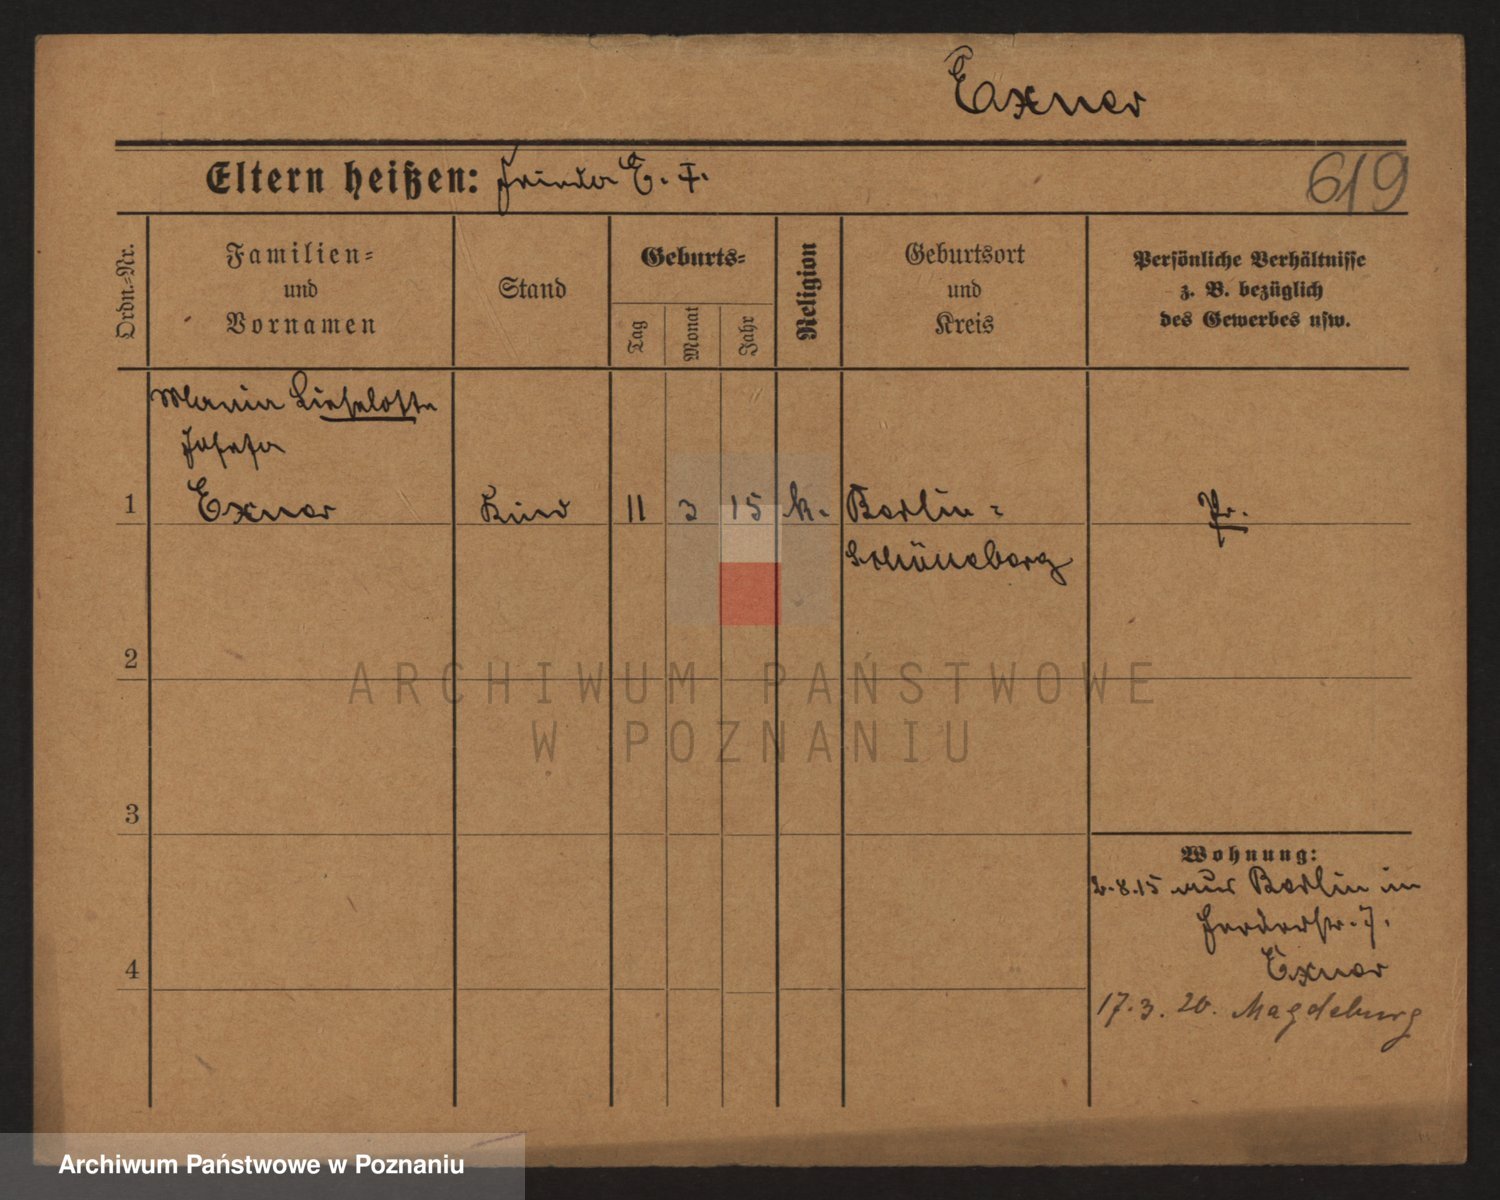 Exner
Eltern heißen: Frieda E. F.
619
Ordn.-Nr.
Familien-
und
Vornamen
Stand
Geburts-
Tag
Monat
Jahr
Religion
Geburtsort
und
Kreis
Persönliche Verhältnisse
z. B. bezüglich
des Gewerbes usw.
Maria Lieselotte
Josefa
1 Exner Kind 11 3 15 k. Berlin- Pr.
Schöneberg
2
3
4
Wohnung:
2.8.15 aus Berlin in
7.
Exner
17.3.20. Magdeburg
ARCHIWUM PAŃSTWOWE
W POZNANIU
Archiwum Państwowe w Poznaniu